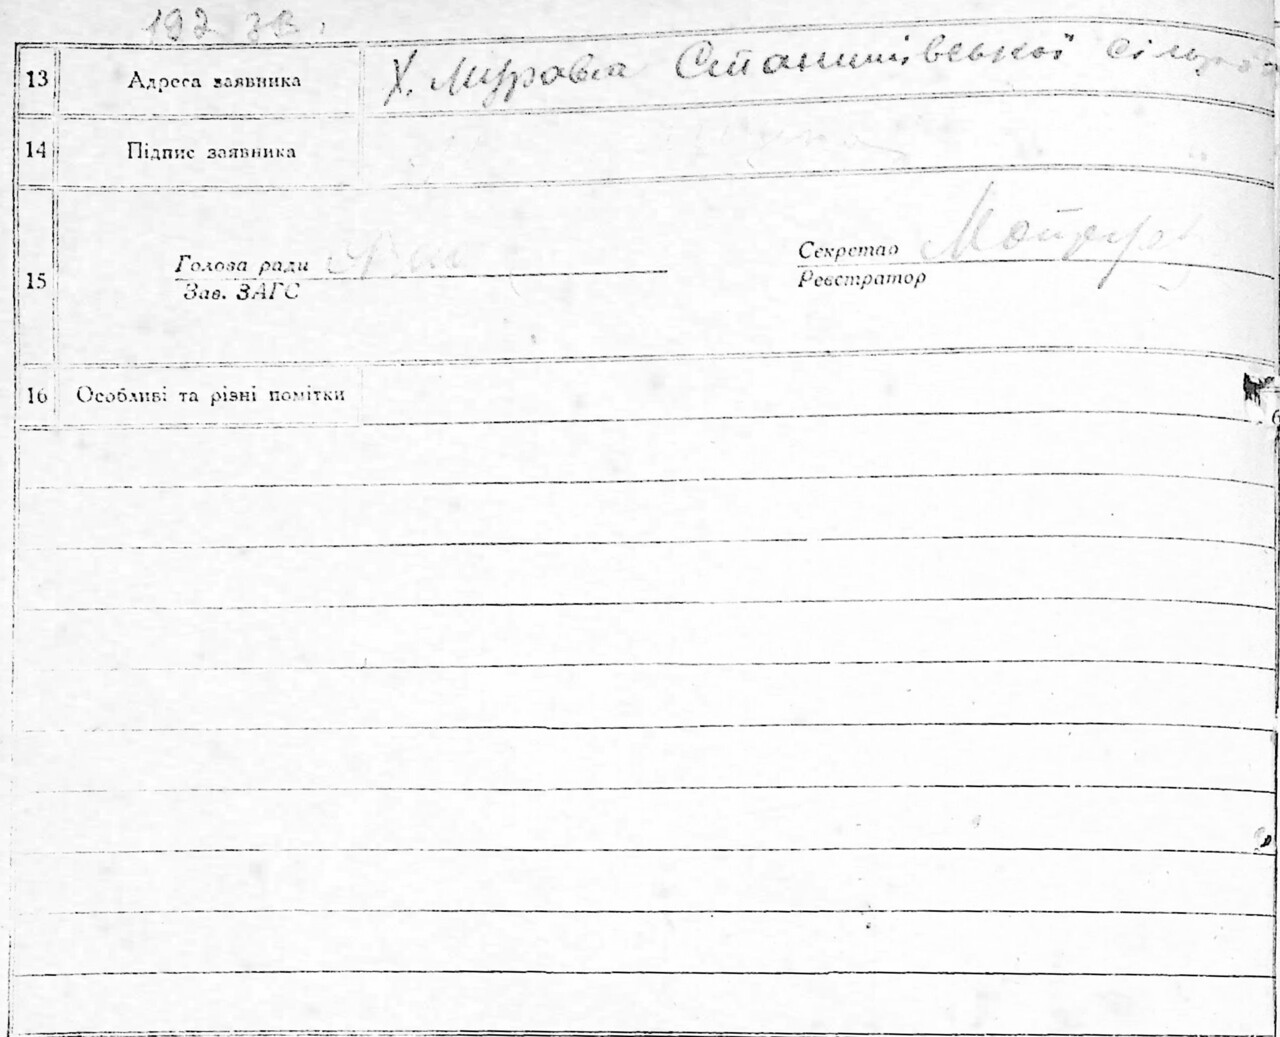 192 зв.
13 Адреса заявника Х. Муравка Станишівської сільрада
14 Підпис заявника
15 Голова ради Секретар
Зав. ЗАГС Реєстратор
16 Особливі та різні помітки
6